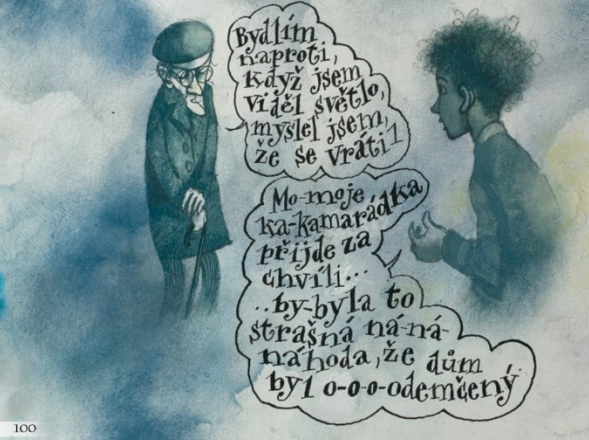 Bydlím
naproti,
když jsem
viděl světlo,
myslel jsem,
že se vrátil
Mo-moje
ka-kamarádka
přijde za
chvíli...
..by-byla to
strašná ná-ná-
náhoda, že dům
byl o-o-o-odemčený
100